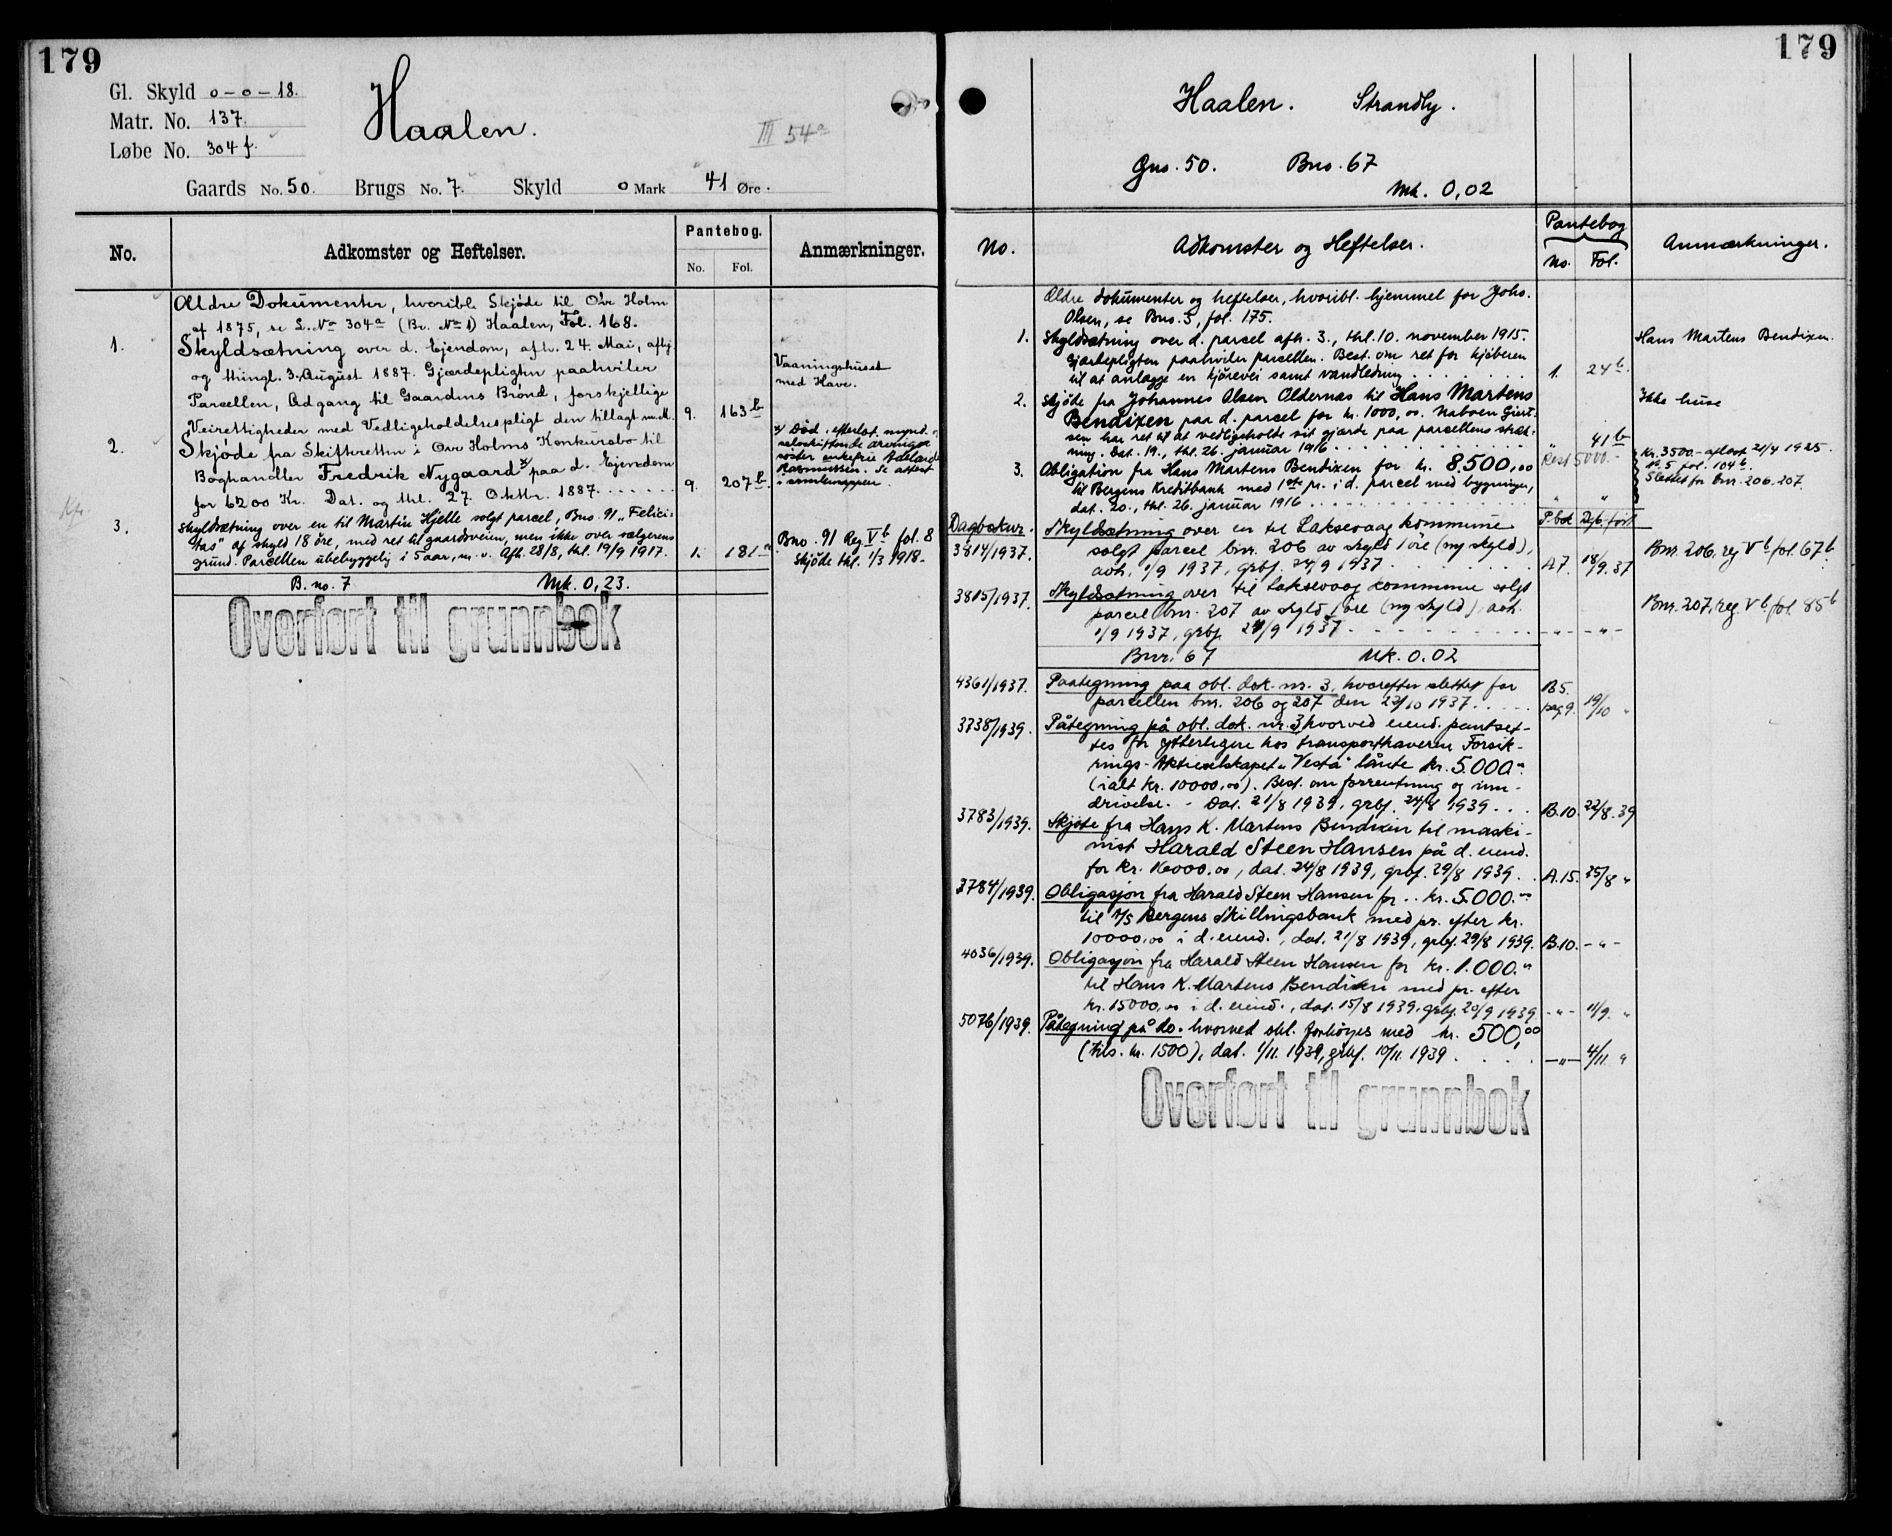 179
Gl. Skyld 0-0-18.
Matr. No. 137.
Løbe No. 304 f.
Haalen.
III 54a
Gaards No. 50. Brugs No. 7. Skyld 0 Mark 41 Øre.
No.
Adkomster og Heftelser.
Pantebog.
No. Fol.
Anmærkninger.
Ældre Dokumenter, hvoribl. Skjøde til Ovr Holm
af 1875, se L. No 304a (Br. No 1) Haalen, Fol. 168.
1. Skyldsætning over d. Ejendom, afh. 24. Mai, afhj.
og thingl. 3. August 1887. Gjærdepligten paahviler
Parcellen, Adgang til Gaardens Brønd, forskjellige
Veirettigheder med Vedligeholdelsespligt den tillagt m.M. 9. 163b
Vaaningshuset
med Have.
2. Skjøde fra Skifteretten i Ovr Holms Konkursbo til
Boghandler Fredrik Nygaard x paa d. Ejendom
for 6200 Kr. Dat. og thl. 27. Oktbr. 1887. . . . . . 9. 207b.
x/ Død, efterlat. mynd. og
selvskiftende arvinge
søster enkefru
Rasmussen. Se attest
i samlemappen.
3. Skyldsætning over en til Martin Hjelle solgt parcel, Bno. 91 „Felici-
tas" af skyld 18 øre, med ret til gaardsveien, men ikke over sælgerens
grund. Parcellen ubebyggelig i 5 aar, m. v. Afh. 28/8, thl. 19/9 1917. 1. 181a
Bno. 91 Reg Vb fol. 8
Skjøde thl. 1/3 1918.
B. no. 7 Mk. 0,23.
Overført til grunnbok
179
Haalen. Strandby.
Gno. 50. Bno. 67
Mk. 0,02
No.
Adkomster og Heftelser.
Pantebog
No. Fol.
Anmærkninger.
Ældre dokumenter og heftelser, hvoribl. hjemmel for Johs.
Olsen, se Bno. 5, fol. 175.
1. Skyldsætning over d. parcel afh. 3., thl. 10. november 1915.
Gjærdepligten paahviler parcellen. Best. om ret for kjøberen
til at anlægge en kjørevei samt vandledning . . . . . . 1. 24b.
Hans Martens Bendixen.
2. Skjøde fra Johannes Olsen Oldernæs til Hans Martens
Bendixen paa d. parcel for kr. 1000,00. Naboen Gjert-
sen har ret til at vedligeholde sit gjærde paa parcellens stræk-
ning. Dat. 19., thl. 26. januar 1916 . . . . . . " 41b
Ikke huse
3. Obligation fra Hans Martens Bendixen for kr. 8.500,00
til Bergens Kreditbank med 1ste pr. i d. parcel med bygninger,
dat. 20., thl. 26. januar 1916 . . . . . . " "
Rest 5000.-
Kr. 3500.- aflæst 21/4 1925.
No. 5 fol. 104b.
Slettet for bnr. 206, 207.
Dagboknr. P. bok
3814/1937. Skyldsætning over en til Laksevaag kommune
solgt parcel bnr. 206 av skyld 1 øre (ny skyld),
avh. 1/9 1937, grbf. 24/9 1937 . . . . A7. 18/9.37
Bnr. 206. reg Vb fol 67b
3815/1937. Skyldsætning over til Laksevaag kommune solgt
parcel bnr. 207 av skyld 1 øre (ny skyld), avh.
1/9 1937, grbf. 24/9 1937 . . . . -"- -"-
Bnr. 207, reg. Vb, fol 85b
Bnr. 67 Mk. 0.02
4361/1937. Paategning paa obl. dok. nr. 3, hvorefter slettet for
parcellen bnr. 206 og 207 den 23/10 1937. . . . B5. pag 9. 19/10 "
3738/1939. Påtegning på obl. dok. nr. 3 hvorved eiend. pantset-
tes for ytterligere hos transporthaveren Forsik-
rings-Aktieselskapet „Vesta" lånte kr. 5.000."
(ialt kr. 10000,00). Best. om forrentning og inn-
drivelse. - Dat. 21/8 1939, grbf. 24/8 1939. . . B.10. 22/8.39
3783/1939. Skjøte fra Hans K. Martens Bendixen til maski-
nist Harald Steen Hansen på d. eiend.
for kr. 16000.00, dat. 24/8 1939, grbf. 29/8 1939 . . A.15. 25/8 "
3784/1939. Obligasjon fra Harald Steen Hansen for .. kr. 5.000."
til A/S Bergens Skillingsbank med pr. efter kr.
10000,00 i d. eiend., dat. 21/8 1939, grbf. 29/8 1939. B.10. -"-
4036/1939. Obligasjon fra Harald Steen Hansen for kr. 1.000."
til Hans K. Martens Bendixen med pr. efter
kr. 15000,00 i d. eiend., dat. 15/8 1939, grbf. 20/9 1939 -"- 11/9. "
5076/1939. Påtegning på do. hvorved obl. forhøies med kr. 500,00
(tils. kr. 1500), dat. 1/11. 1939, grbf. 10/11. 1939 . . . . -"- 4/11. "
Overført til grunnbok